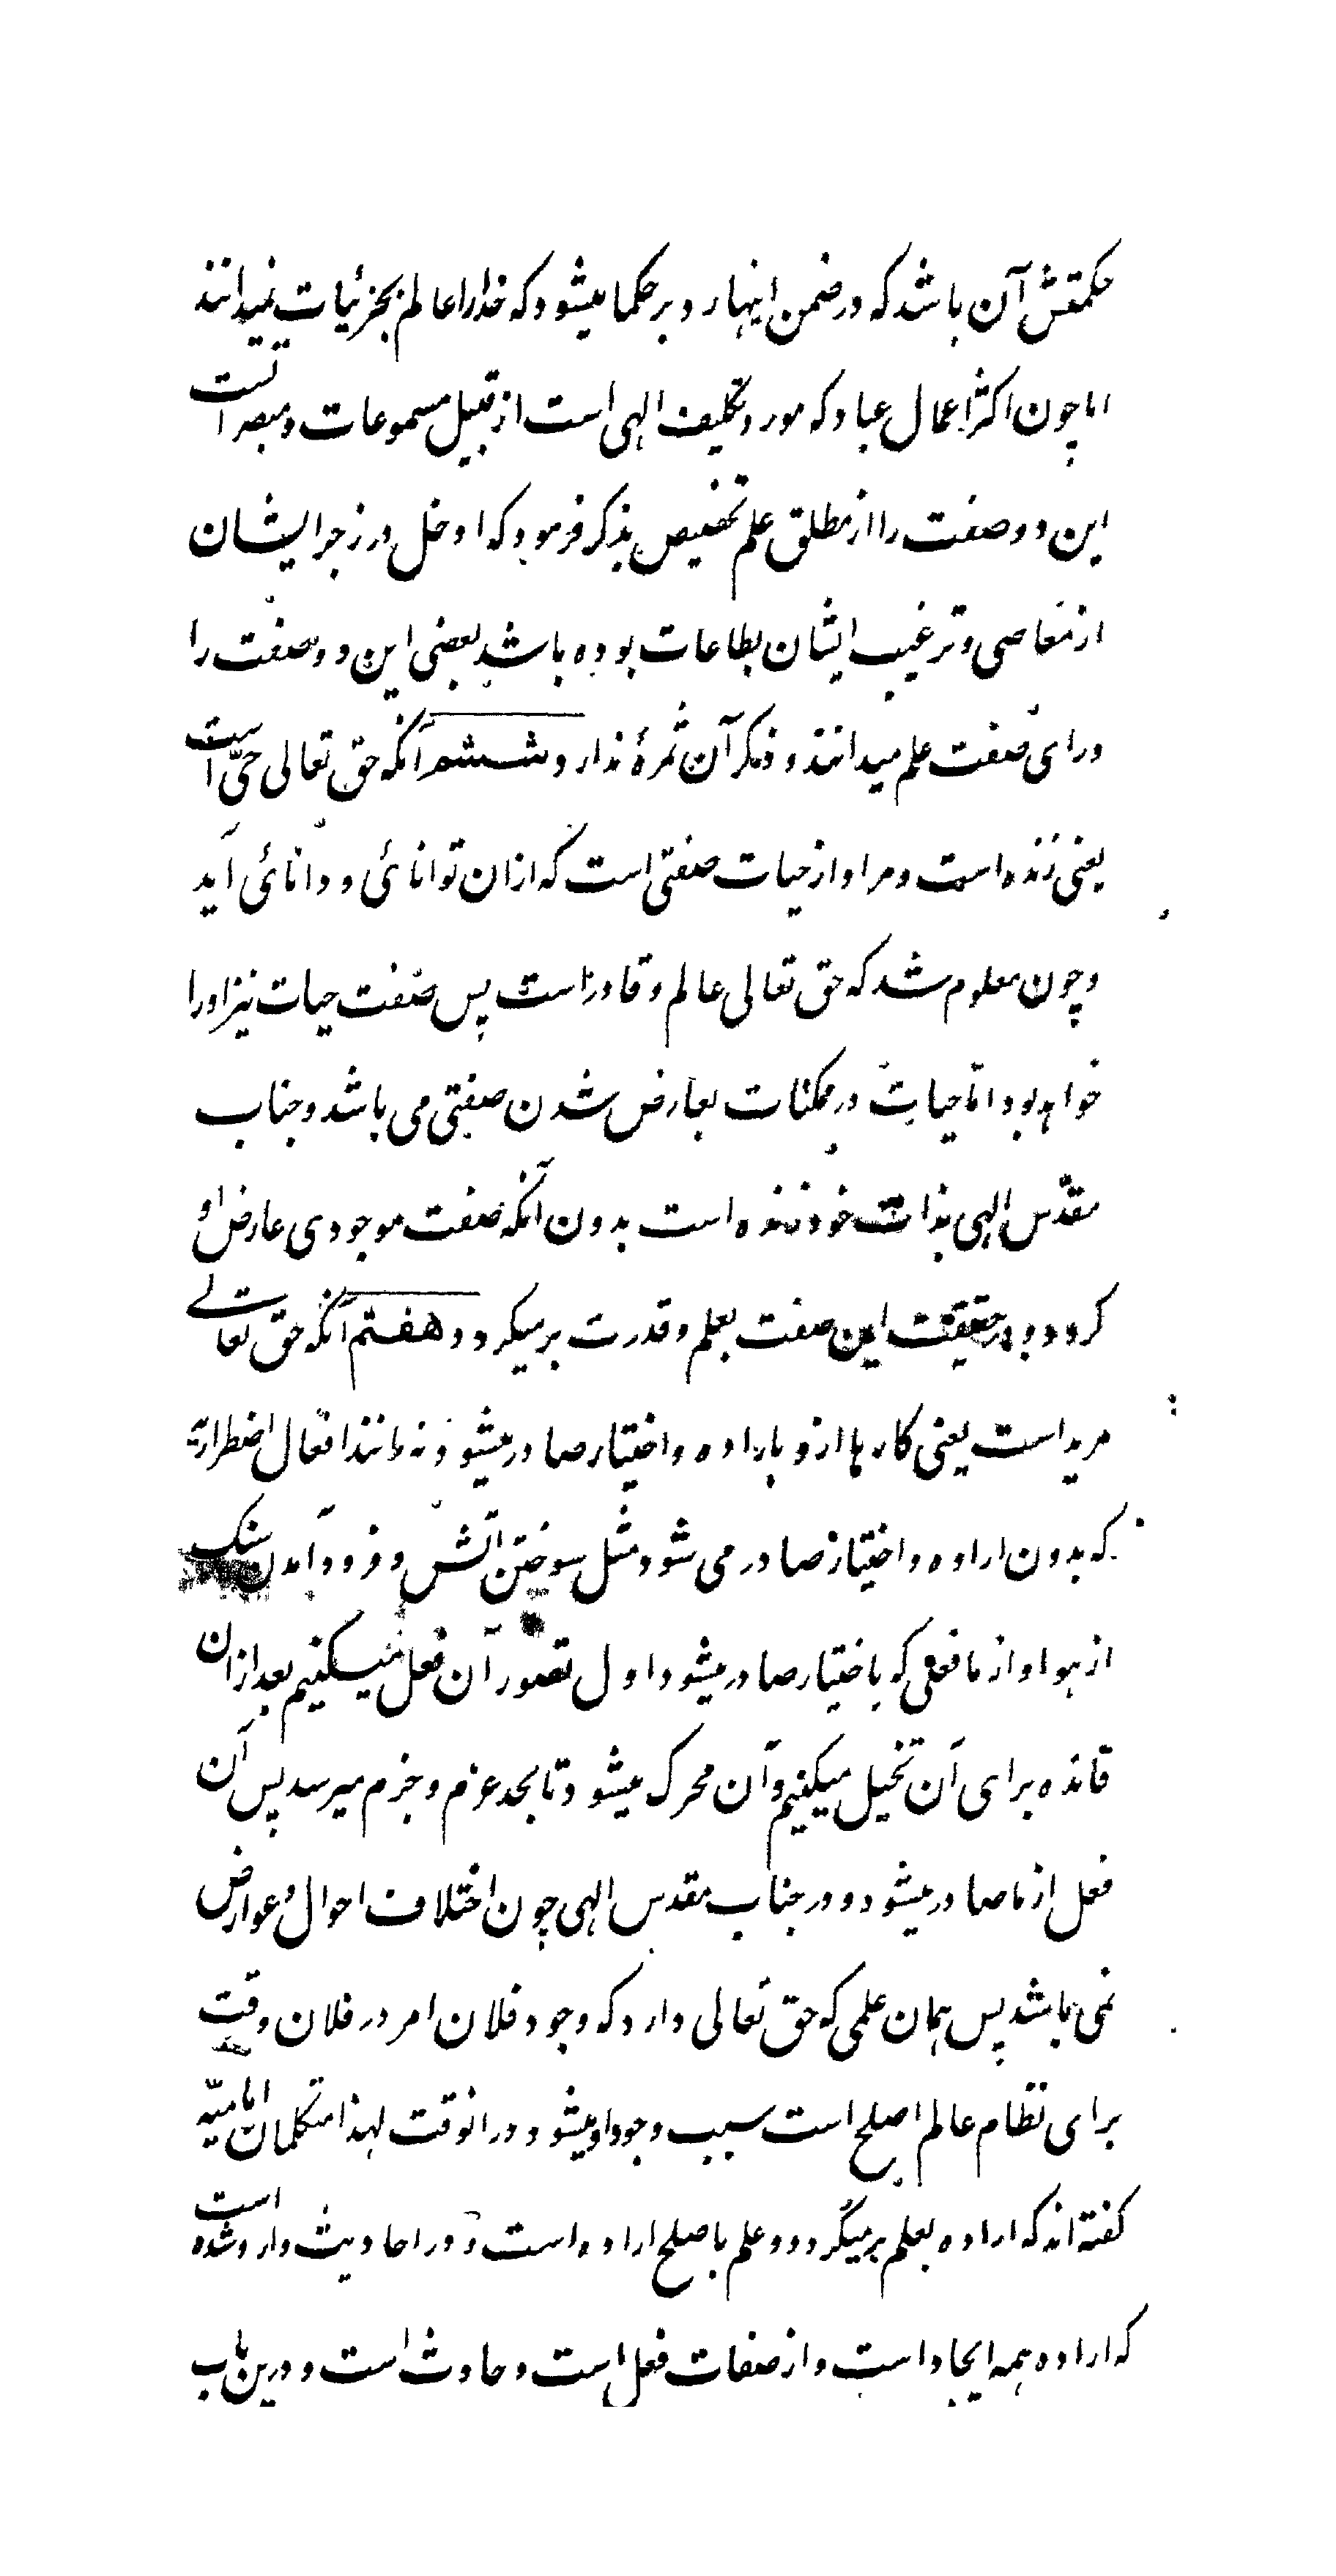 حکمتش آن باشد که در ضمن اینها رد بر حکما میشود که خدا را عالم بجزئیات نمیدانند
اما چون اکثر اعمال عباد که مورد تکلیف الهی است از قبیل مسموعات و مبصراتست
این دو صفت را از مطلق علم تخصیص بذکر فرمود که ادخل در زجر ایشان
از معاصی و ترغیب ایشان بطاعات بوده باشد بعضی این دو صفت را
ورای صفت علم میدانند و ذکر آن ثمرهٔ ندارد ششم آنکه حق تعالی حیّ است
یعنی زنده است و مراد از حیات صفتی است که ازان توانائی و دانائی آید
و چون معلوم شد که حق تعالی عالم و قادر است پس صفت حیات نیز او را
خواهد بود امّا حیات در ممکنات بعارض شدن صفتی می باشد و جناب
مقدّس الهی بذات خود زنده است بدون آنکه صفت موجودی عارض او
گردد و در حقیقت این صفت بعلم و قدرت برمیگردد هفتم آنکه حق تعالے
مرید است یعنی کارها ازو باراده و اختیار صادر میشود نه مانند افعال اضطراریه
که بدون اراده و اختیار صادر می شود مثل سوختن آتش و فرود آمدن سنک
از هوا و از ما فعلی که باختیار صادر میشود اول تصور آن فعل میکنیم بعد ازان
فائده برای آن تخیل میکنیم و آن محرک میشود تا بحد عزم و جزم میرسد پس آن
فعل از ما صادر میشود و در جناب مقدس الهی چون اختلاف احوال و عوارض
نمی باشد پس همان علمی که حق تعالی دارد که وجود فلان امر در فلان وقت
برای نظام عالم اصلح است سبب وجود او میشود در انوقت لهذا متکلمان امامیّه
گفته اند که اراده بعلم برمیگردد و علم باصلح اراده است و در احادیث وارد شده است
که اراده همه ایجاد است و از صفات فعل است و حادث است و درین باب